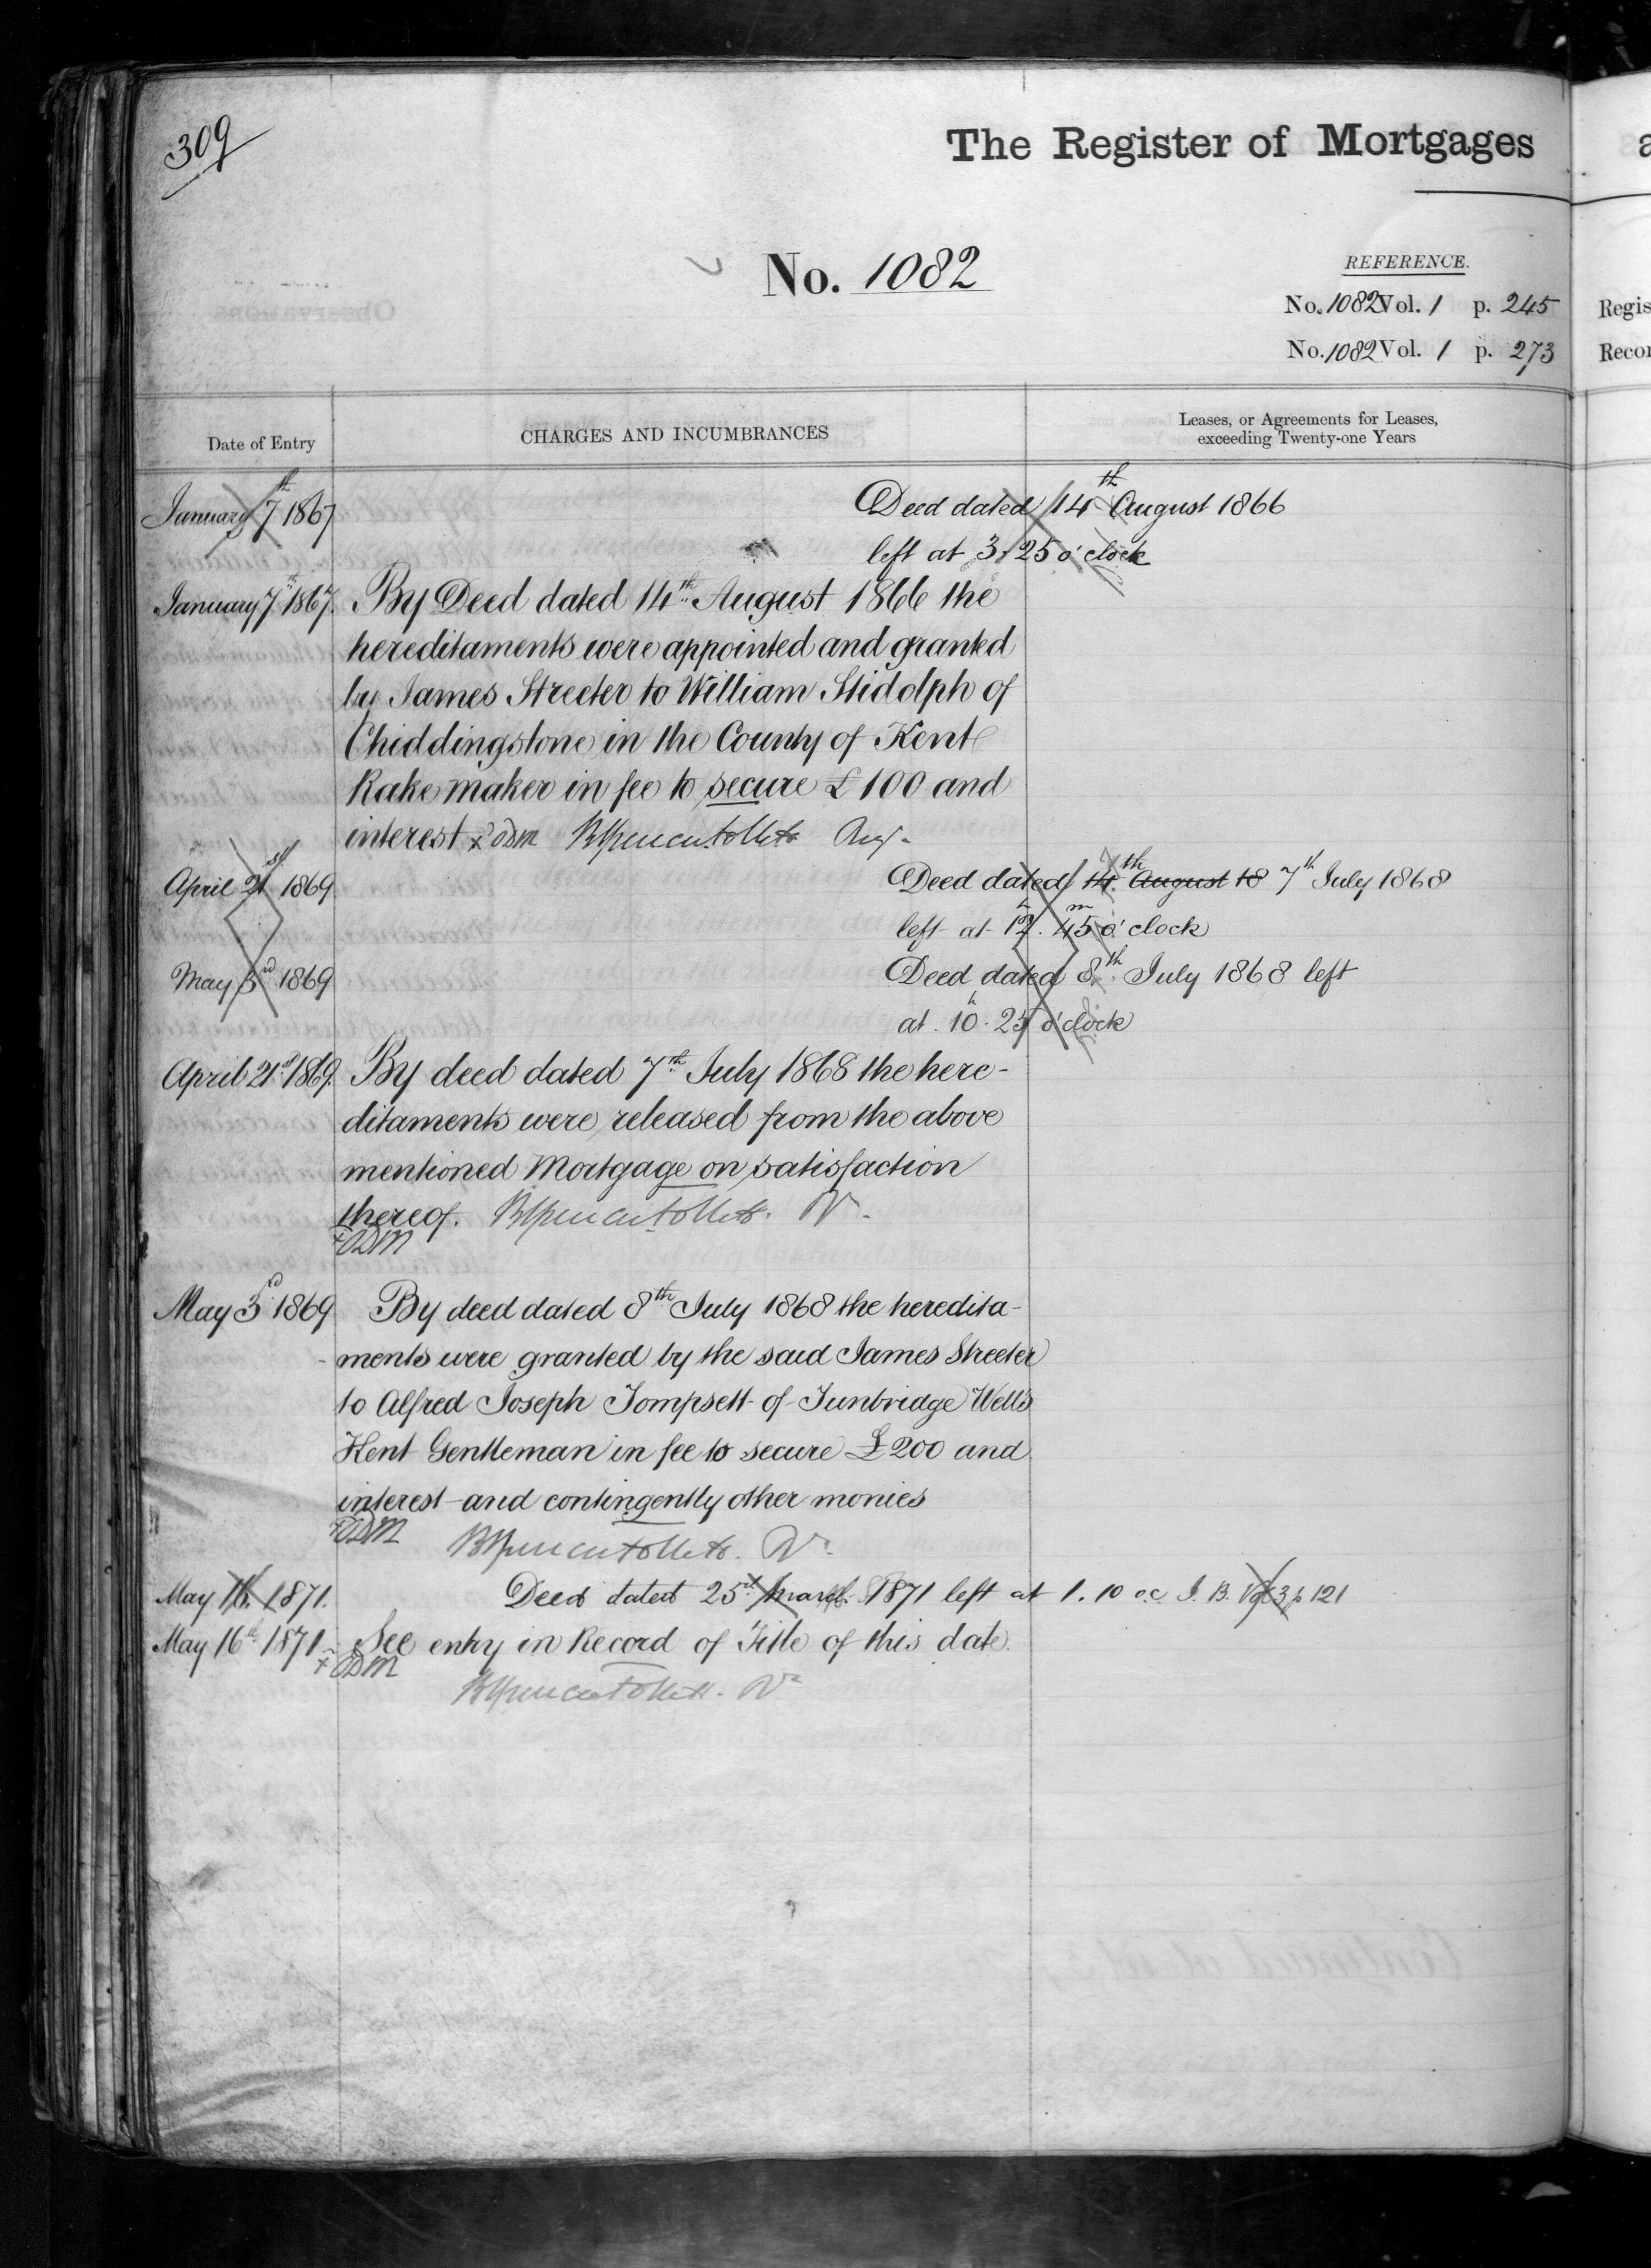 309
The Register of Mortgages
No. 1082
REFERENCE.
No. 1082 Vol. 1 p. 245
No. 1082 Vol. 1 p. 273
Regis
Recor
Date of Entry
CHARGES AND INCUMBRANCES
Leases, or Agreements for Leases,
exceeding Twenty-one Years
January 7th 1867 Deed dated 14th August 1866
left at 3.25 o'clock
January 7th 1867. By Deed dated 14th August 1866 the
hereditaments were appointed and granted
by James Streeter to William Stidolph of
Chiddingstone in the County of Kent
Rake maker in fee to secure £100 and
interest x ODM
April 21st 1869 Deed dated 14th August 18 7th July 1868
left at 12h. 45m o'clock
May 3rd 1869 Deed dated 8th July 1868 left
at 10h. 25 o'clock
April 21st 1869. By deed dated 7th July 1868 the here-
ditaments were released from the above
mentioned Mortgage on satisfaction
thereof.
x ODM
May 3rd 1869 By deed dated 8th July 1868 the heredita-
ments were granted by the said James Streeter
to Alfred Joseph Tompsett of Tunbridge Wells
Kent Gentleman in fee to secure £200 and
interest and contingently other monies
x ODM
May 16. 1871. Deed dated 25th March 1871 left at 1.10 o.c. I. B. Vol 3 p 121
May 16th 1871. See entry in Record of Title of this date.
x ODM